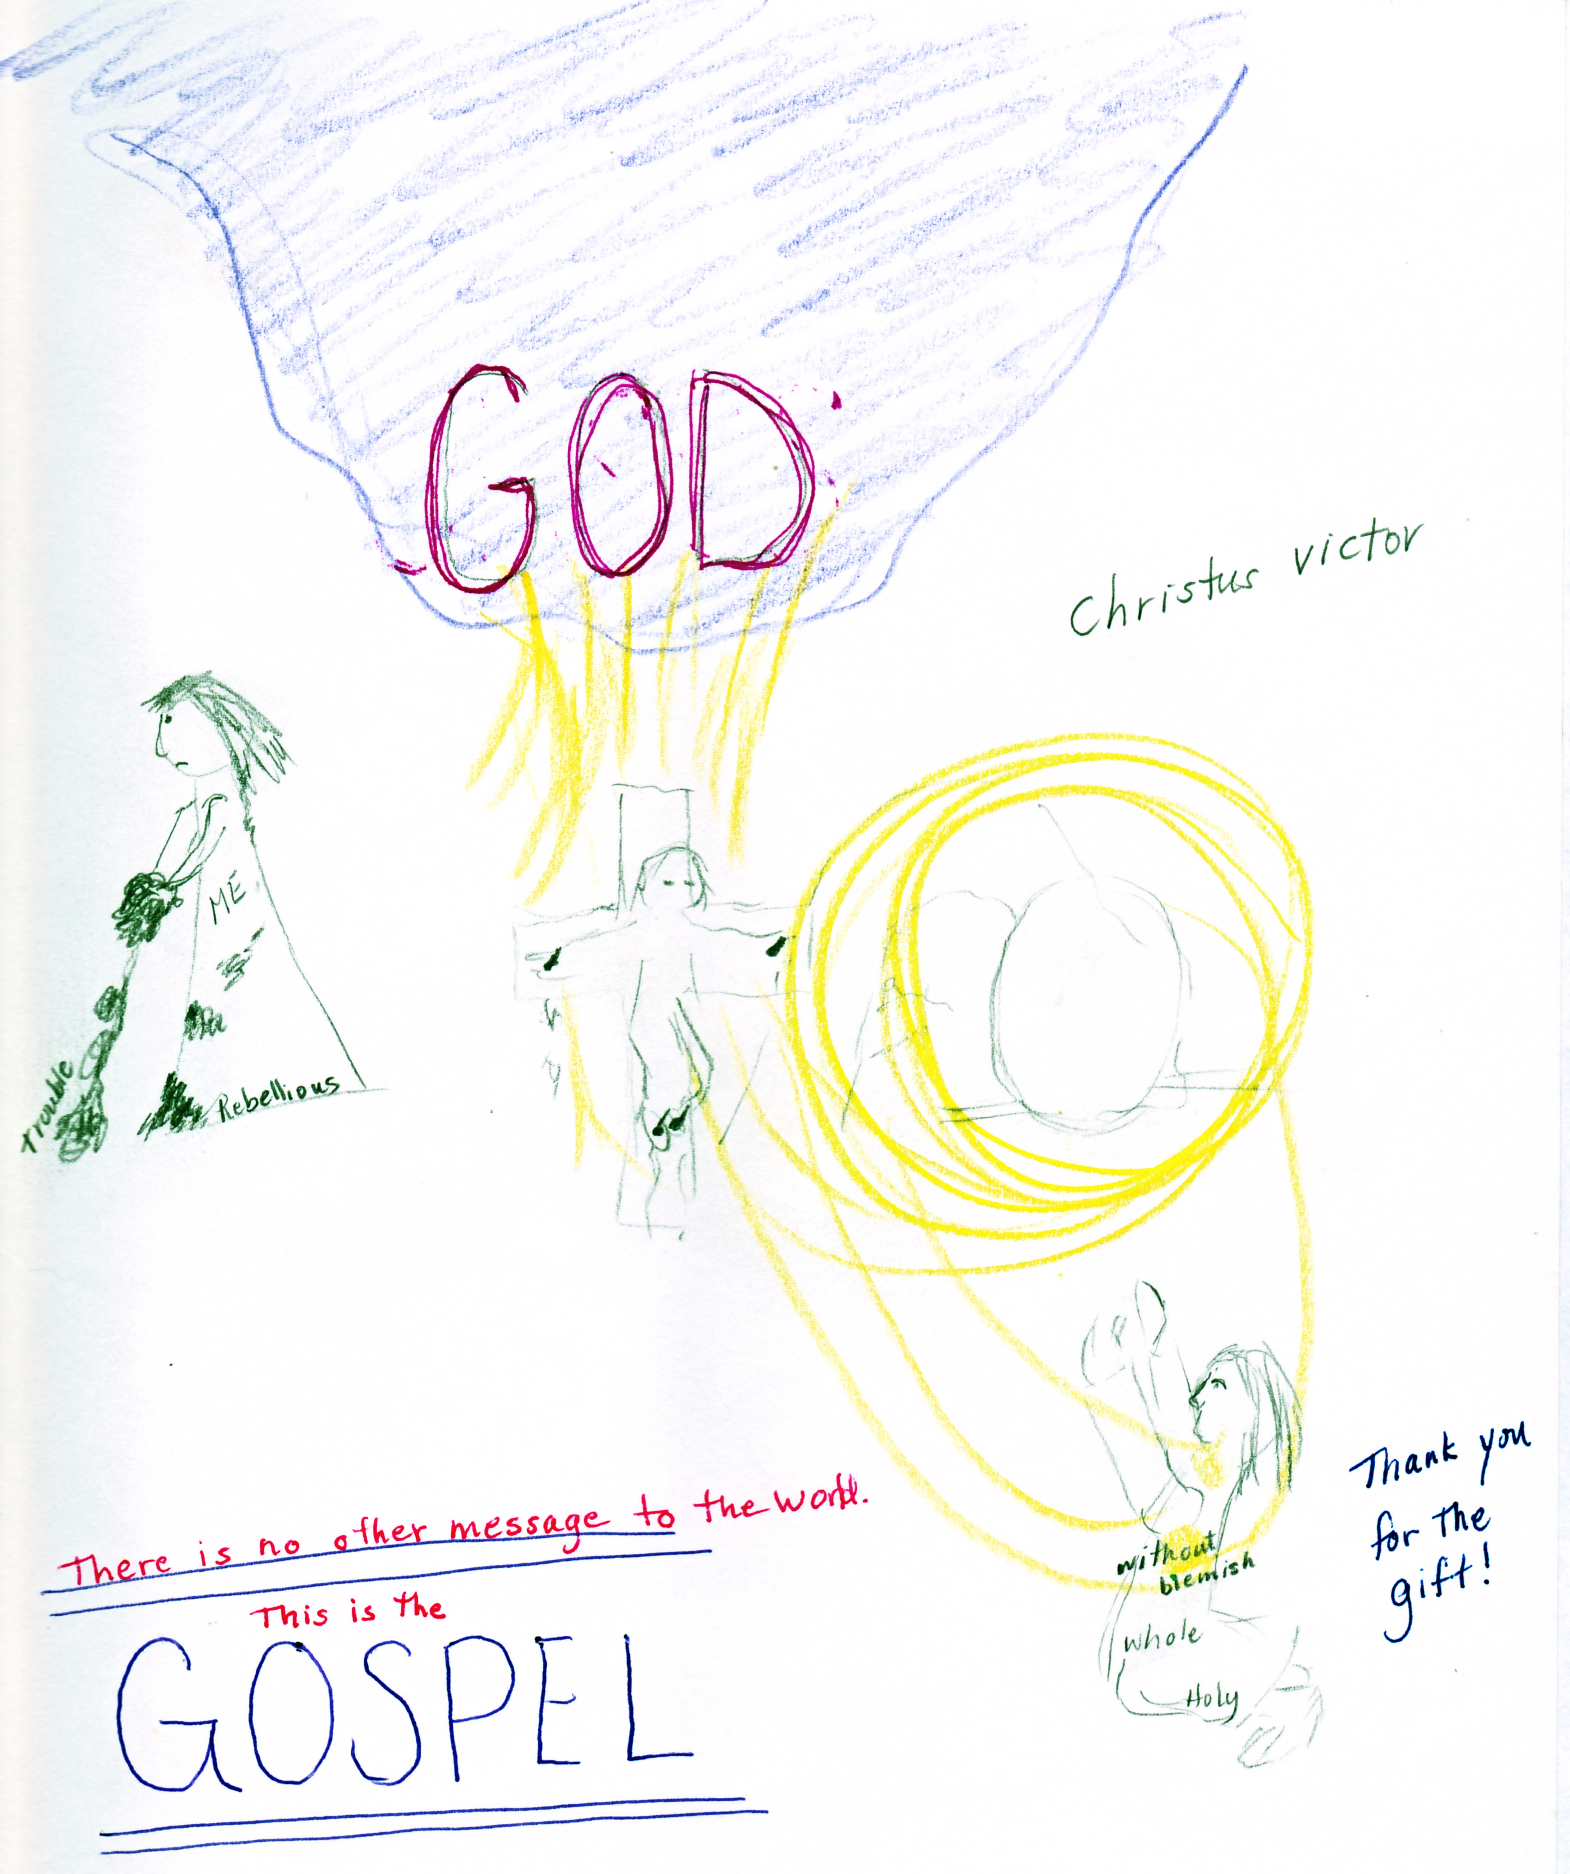 GOD
Christus victor
ME
Trouble
Rebellious
There is no other message to the world.
This is the
GOSPEL
without
blemish
whole
Holy
Thank you
for the
gift!